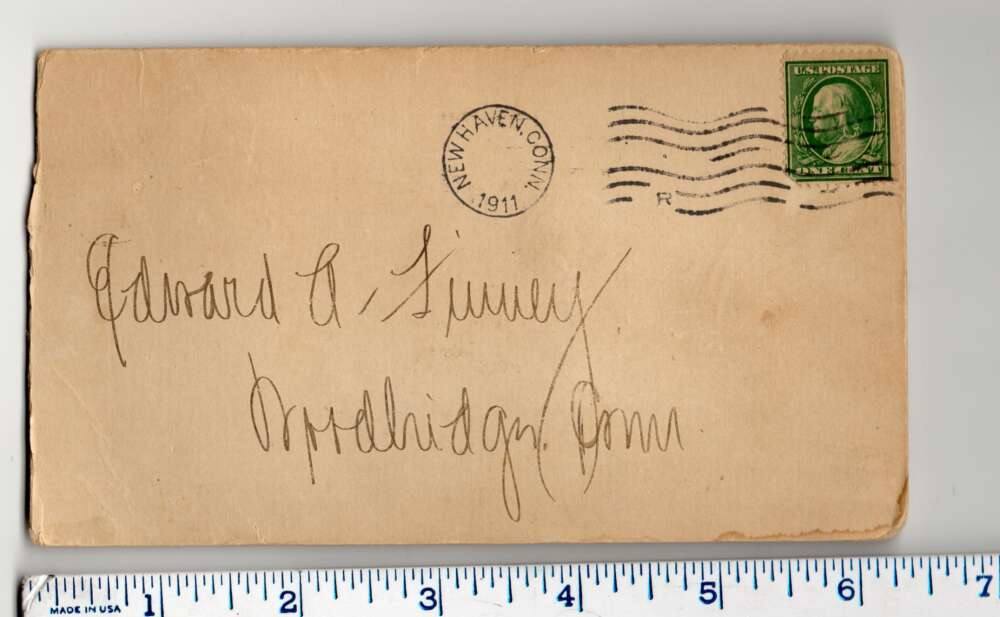 U.S. POSTAGE
NEW HAVEN, CONN.
1911
R
Edward A. Finney
Woodbridge, Conn
MADE IN USA
1 2 3 4 5 6 7